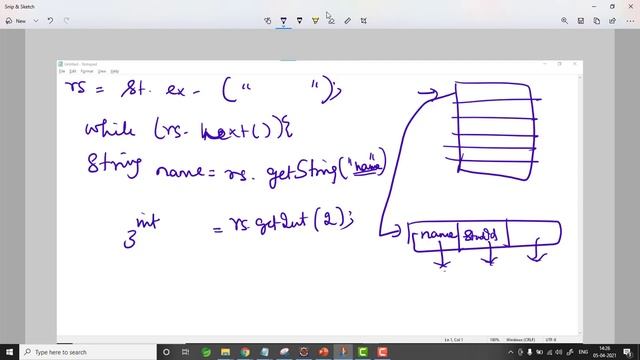 Snip & Sketch
New
Untitled - Notepad
File Edit Format View Help
rs = St. ex - (" ");
while (rs. next()){
String name = rs. getString("name")
int = rs getInt (2);
}
name Stuid
Ln 1, Col 1 100% Windows (CRLF)
Type here to search
ENG
14:26
05-04-2021